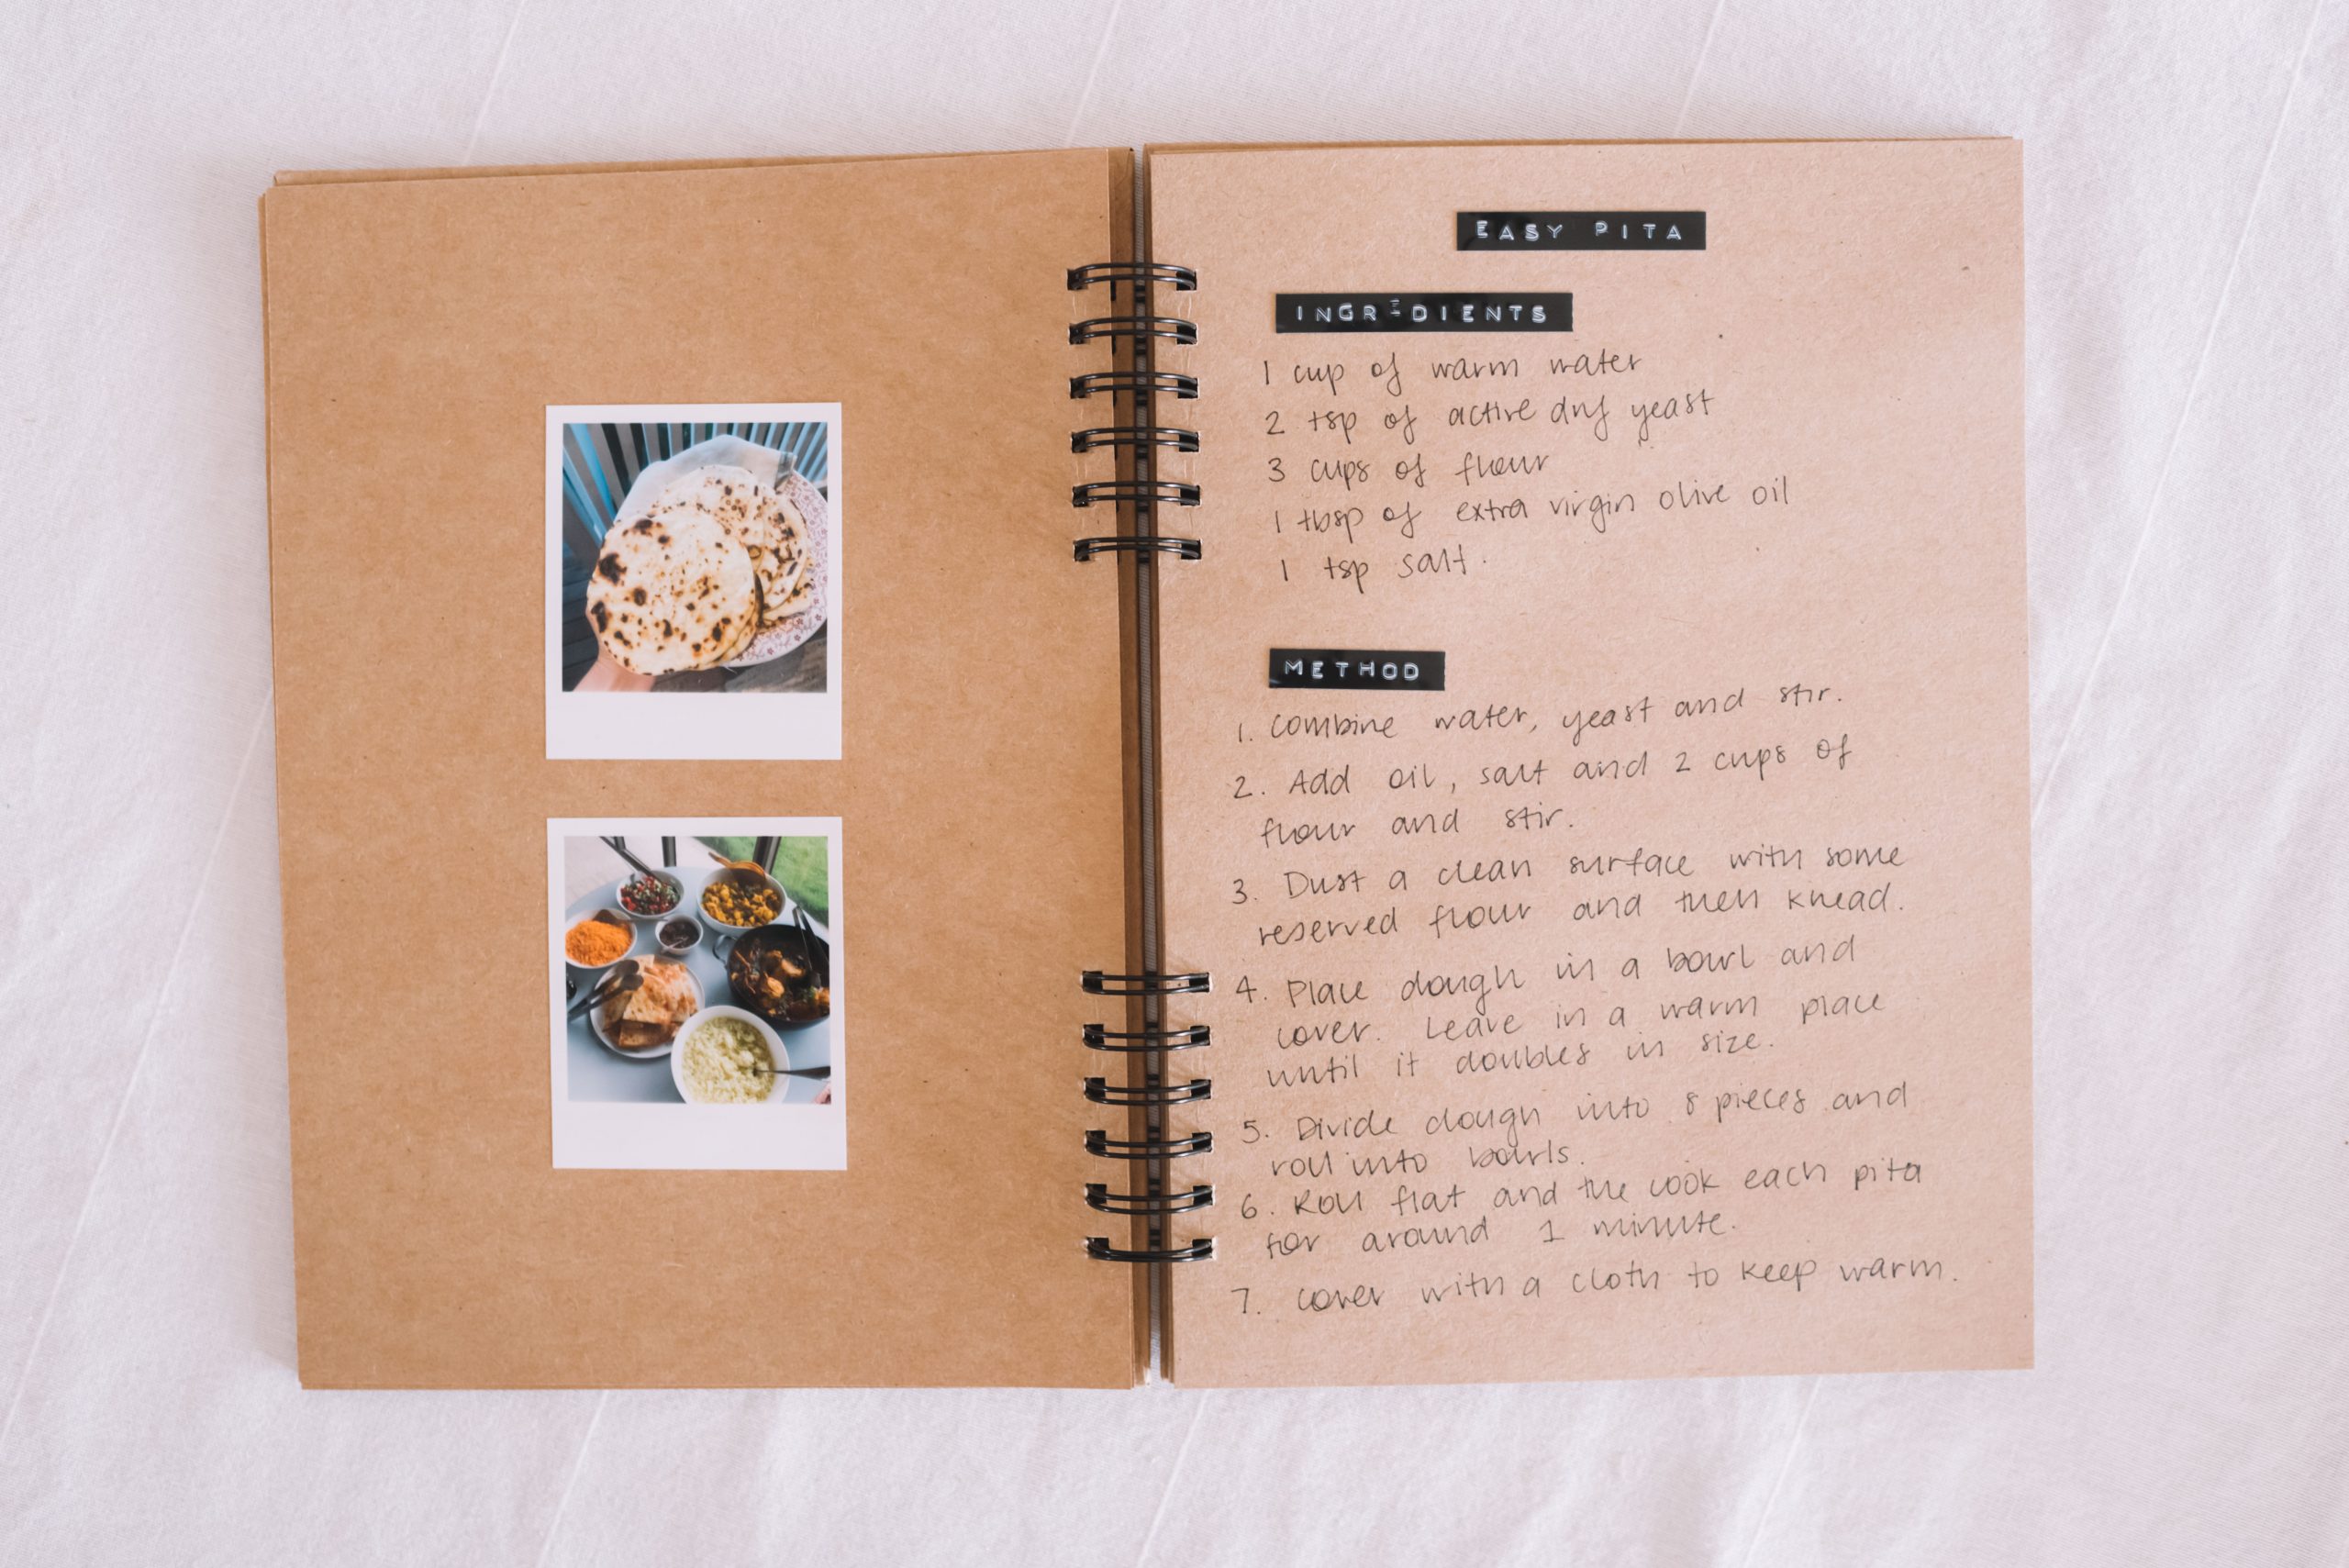 EASY PITA
INGREDIENTS
1 cup of warm water
2 tsp of active dry yeast
3 cups of flour
1 tbsp of extra virgin olive oil
1 tsp salt.
METHOD
1. Combine water, yeast and stir.
2. Add oil, salt and 2 cups of
flour and stir.
3. Dust a clean surface with some
reserved flour and then knead.
4. Place dough in a bowl and
cover. Leave in a warm place
until it doubles in size.
5. Divide dough into 8 pieces and
roll into bowls.
6. Roll flat and the cook each pita
for around 1 minute.
7. cover with a cloth to keep warm.